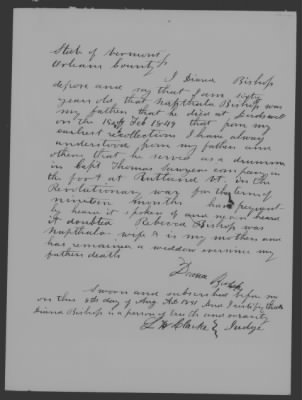 State of Vermont
Orleans County
I Diana Bishop
depose and say that I am sixty
years old that Napthala Bishop was
my father that he died at
on the 18th Feb 1849 that from my
earliest recollection I have always
understood from my father and
others that he served as a drummer
in Capt Thomas Sawyers company in
the fort at Rutland Vt. in the
Revolutionary war for the term of
nineteen months have frequently
heard it spoken of and never heard
it doubted Rebecca Bishop was
Napthala wife & is my mother and
has remained a widdow ever since my
father death
Diana Bishop
Sworn and subscribed before me
on this 8th day of Aug And I certify that
Diana Bishop is a person of truth and veracity
Clarke Judge